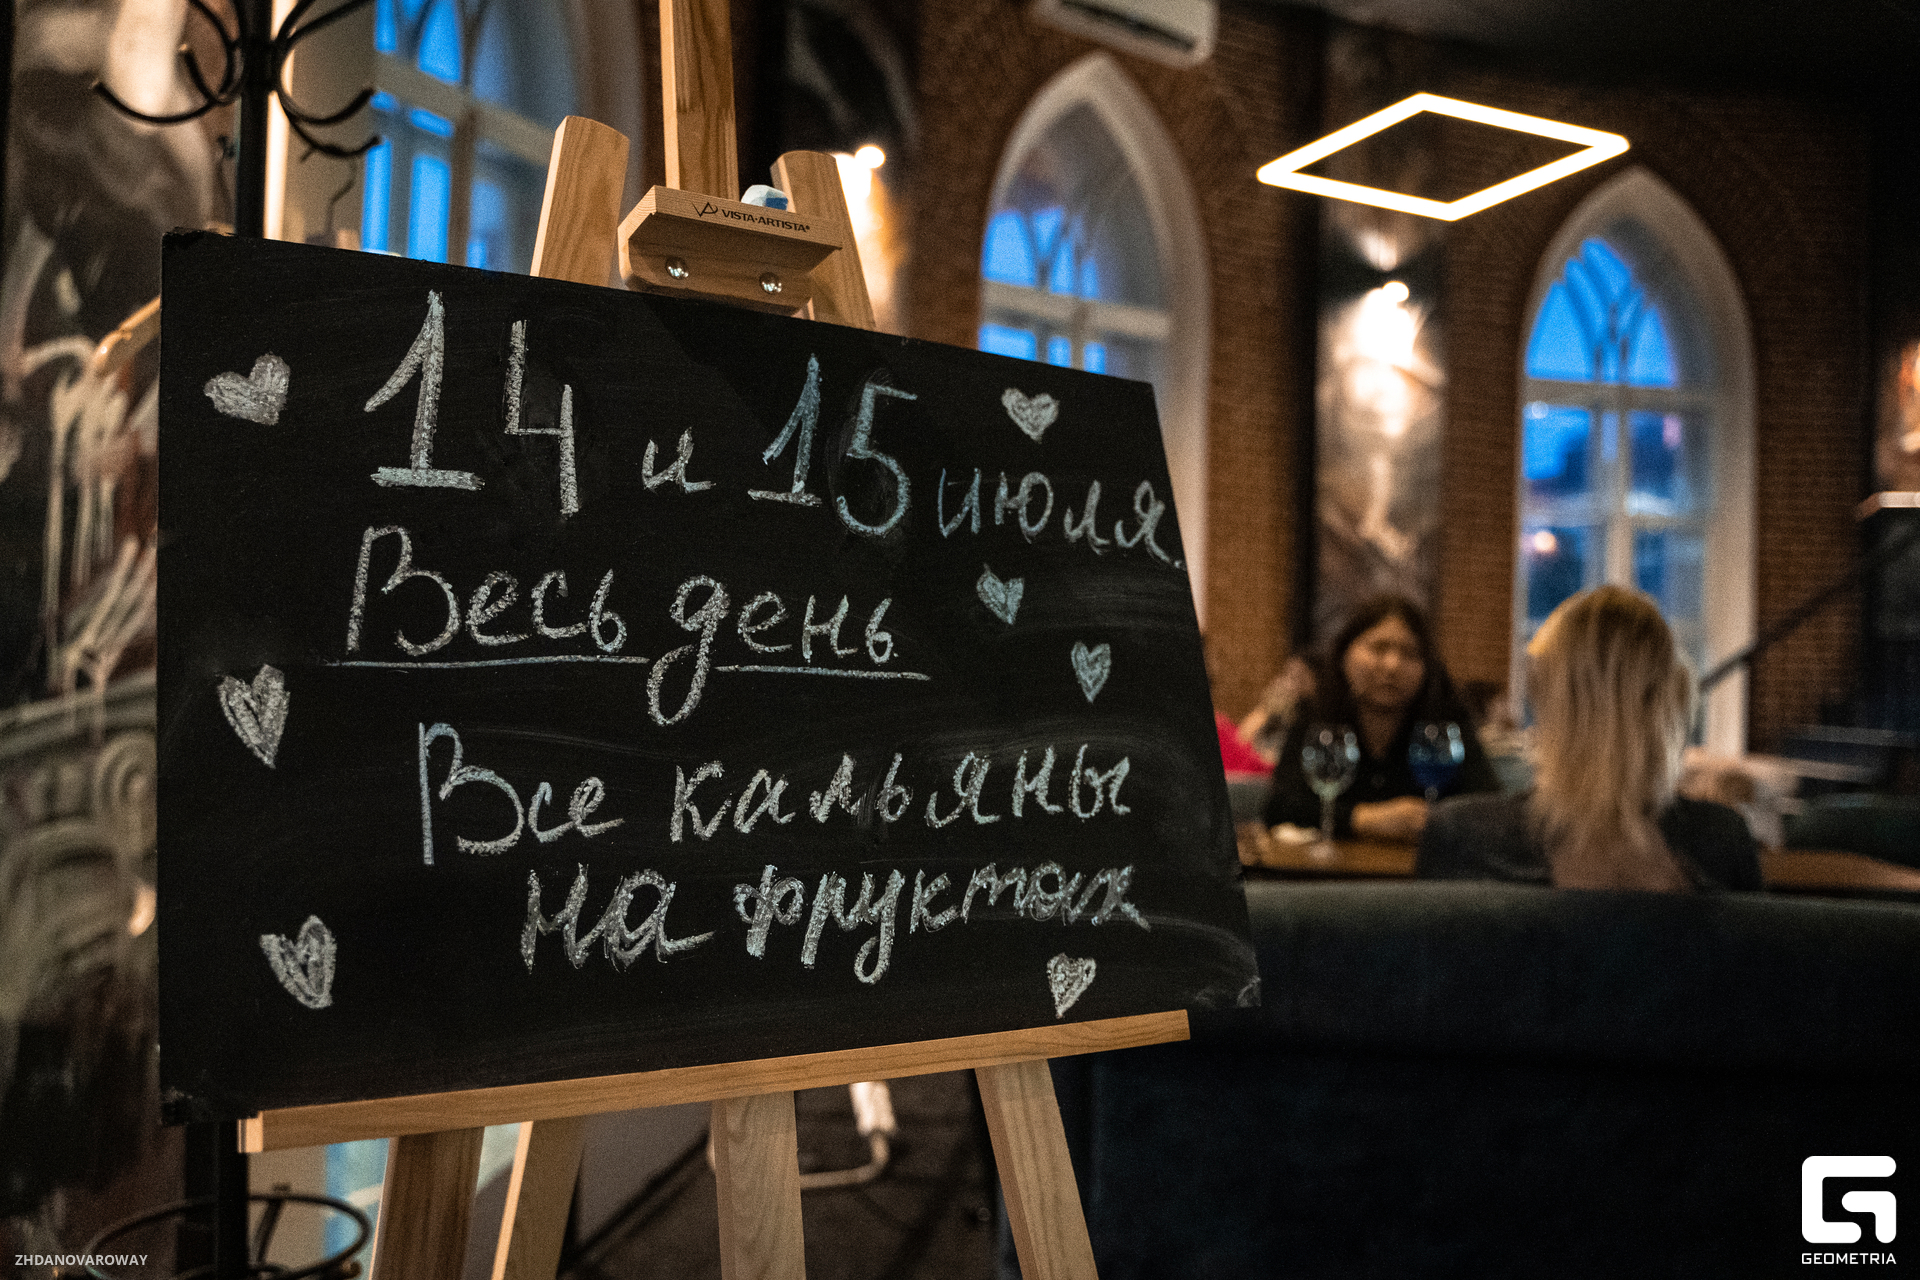 VISTA-ARTISTA
14 и 15 июля
Весь день
Все кальяны
на фруктах
ZHDANOVAROWAY
GEOMETRIA